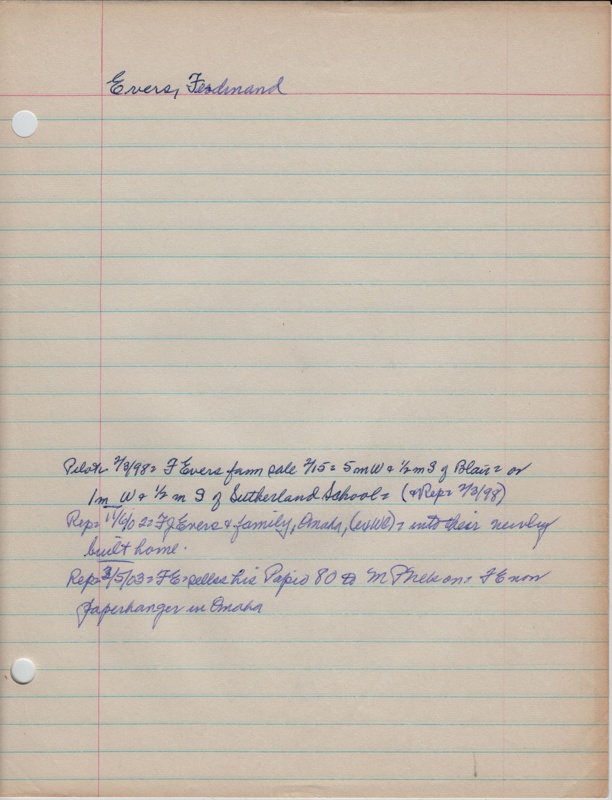 Evers, Ferdinand
Pilot= 2/3/98= F Evers farm sale 2/15= 5 m W & 1/2 m S of Blair= or
1 m W & 1/2 m S of Sutherland School= (& Rep= 2/3/98)
Rep= 11/6/02= F J Evers & family, Omaha, (ex WC)= into their newly
built home.
Rep= 3/5/03= F E= sells his Papio 80 to M P Nelson= F E now
paperhanger in Omaha